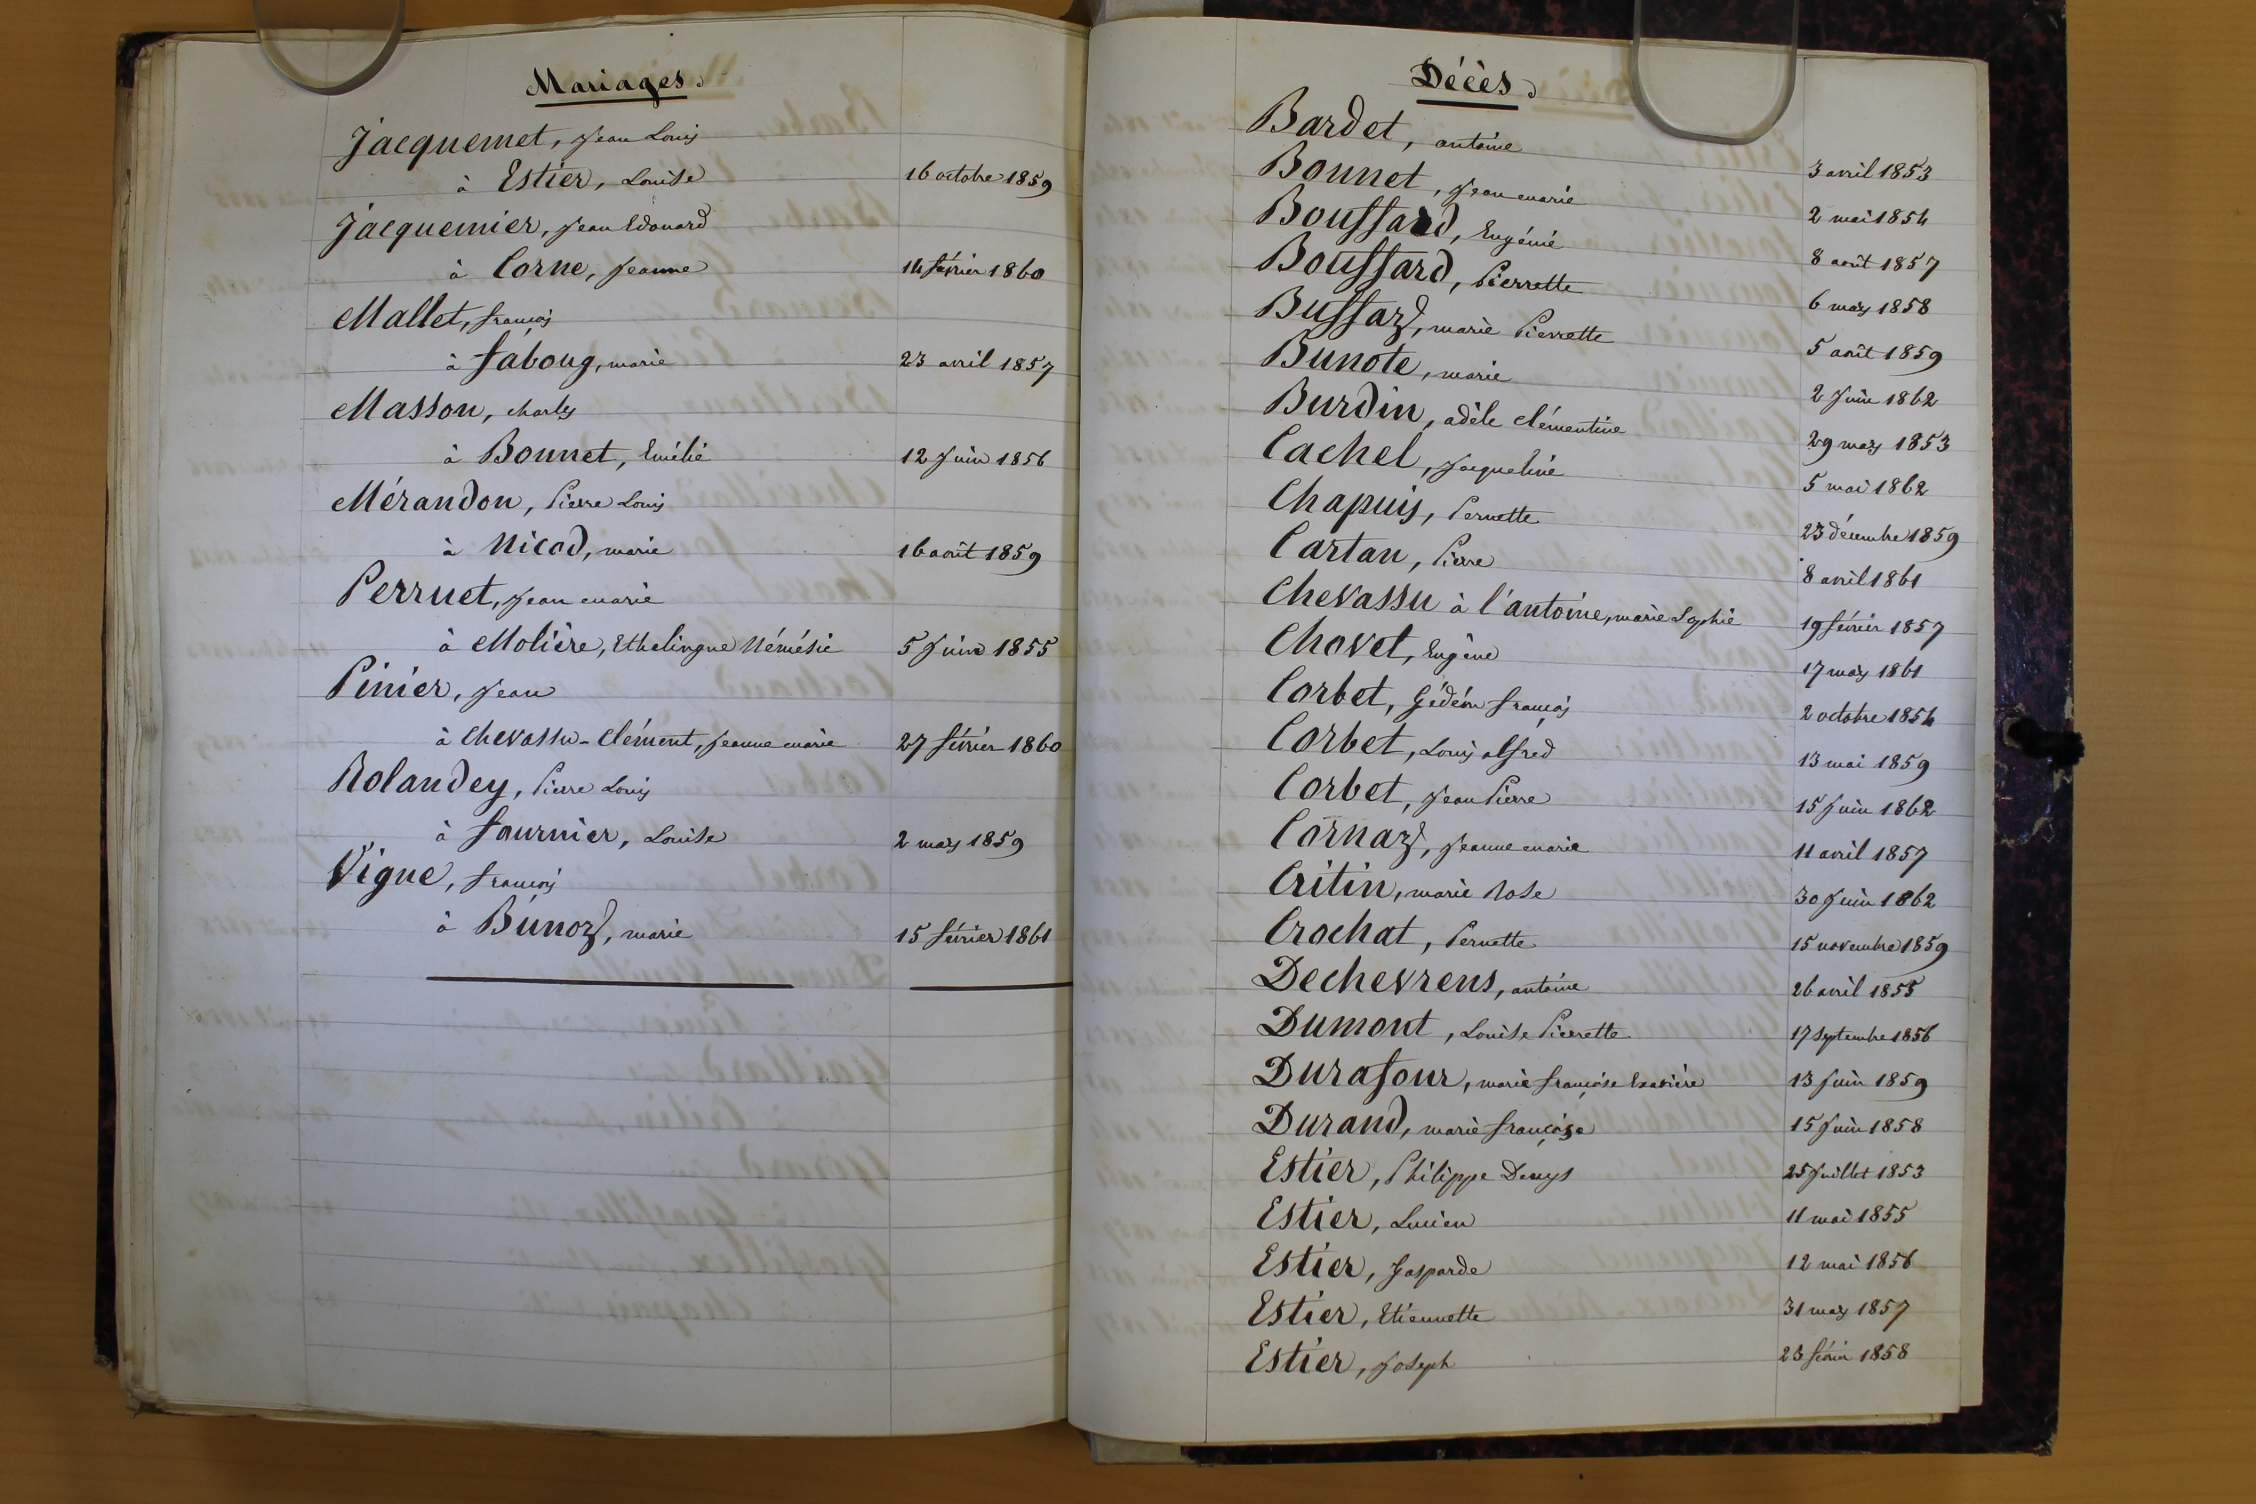 Mariages.
Jacquemet, Jean Louis
à Estier, Louise 16 octobre 1859
Jacquemier, Jean Edouard
à Corne, Jeanne 14 février 1860
Mallet, françois
à faboug, marie 23 avril 1857
Masson, charles
à Bonnet, Emélie 12 Juin 1856
Mérandon, Pierre Louis
à Nicod, marie 16 août 1859
Perruet, Jean marie
à Molière, Ethelingue Némésie 5 Juin 1855
Pinier, Jean
à Chevassu-Clément, Jeanne marie 27 février 1860
Rolandey, Pierre Louis
à fournier, Louise 2 mars 1859
Vigne, françois
à Bunoz, marie 15 février 1861
Décès
Bardet, antoine 3 avril 1853
Bonnet, Jean marie 2 mai 1854
Boussard, Eugénie 8 août 1857
Boussard, Pierrette 6 mars 1858
Bussaz, marie Pierrette 5 août 1859
Bunote, marie 2 Juin 1862
Burdin, adèle clémentine 29 mars 1853
Cachel, Jacqueline 5 mai 1862
Chapuis, Pernette 23 décembre 1859
Cartan, Pierre 8 avril 1861
Chevassu à l'antoine, marie Sophie 19 février 1857
Chovet, Eugène 17 mars 1861
Corbet, Gédéon françois 2 octobre 1854
Corbet, Louis alfred 13 mai 1859
Corbet, Jean Pierre 15 Juin 1862
Cornaz, Jeanne marie 11 avril 1857
Critin, marie Rose 30 Juin 1862
Crochat, Pernette 15 novembre 1859
Dechevrens, antoine 26 avril 1855
Dumont, Louise Pierrette 17 septembre 1856
Durafour, marie françoise Exavière 13 Juin 1859
Durand, marie françoise 15 Juin 1858
Estier, Philippe Denys 25 Juillet 1853
Estier, Lucien 11 mai 1855
Estier, Gasparde 12 mai 1856
Estier, Etiennette 31 mars 1857
Estier, Joseph 23 février 1858